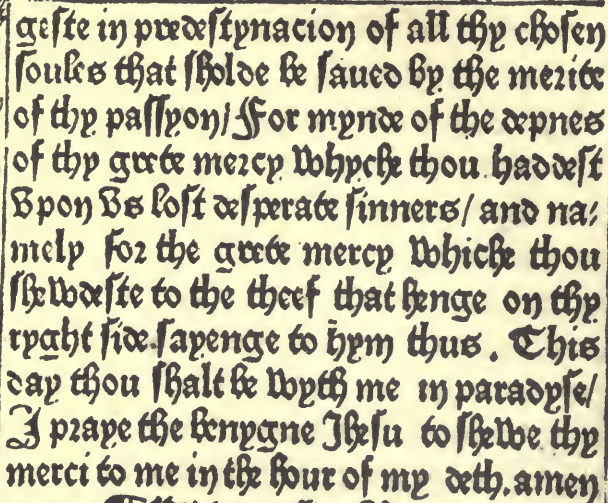 geste in predestynacion of all thy chosen
soules that sholde be saued by the merite
of thy passyon/ For mynde of the depnes
of thy grete mercy whyche thou haddest
Vpon Vs lost desperate sinners/ and na⸗
mely for the grete mercy whiche thou
shewdeste to the theef that henge on thy
ryght side.sayenge to hym thus. This
day thou shalt be wyth me in paradyse/
I praye the benygne Jhesu to shewe thy
merci to me in the hour of my deth, amen